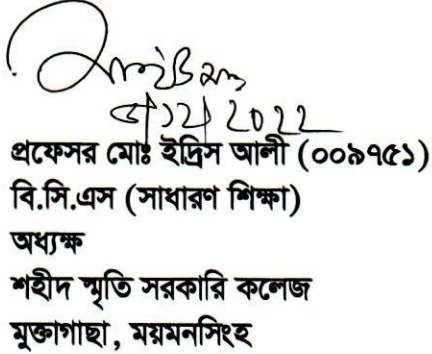 2022
প্রফেসর মোঃ ইদ্রিস আলী (০০৯৭৫১)
বি.সি.এস (সাধারণ শিক্ষা)
অধ্যক্ষ
শহীদ স্মৃতি সরকারি কলেজ
মুক্তাগাছা, ময়মনসিংহ